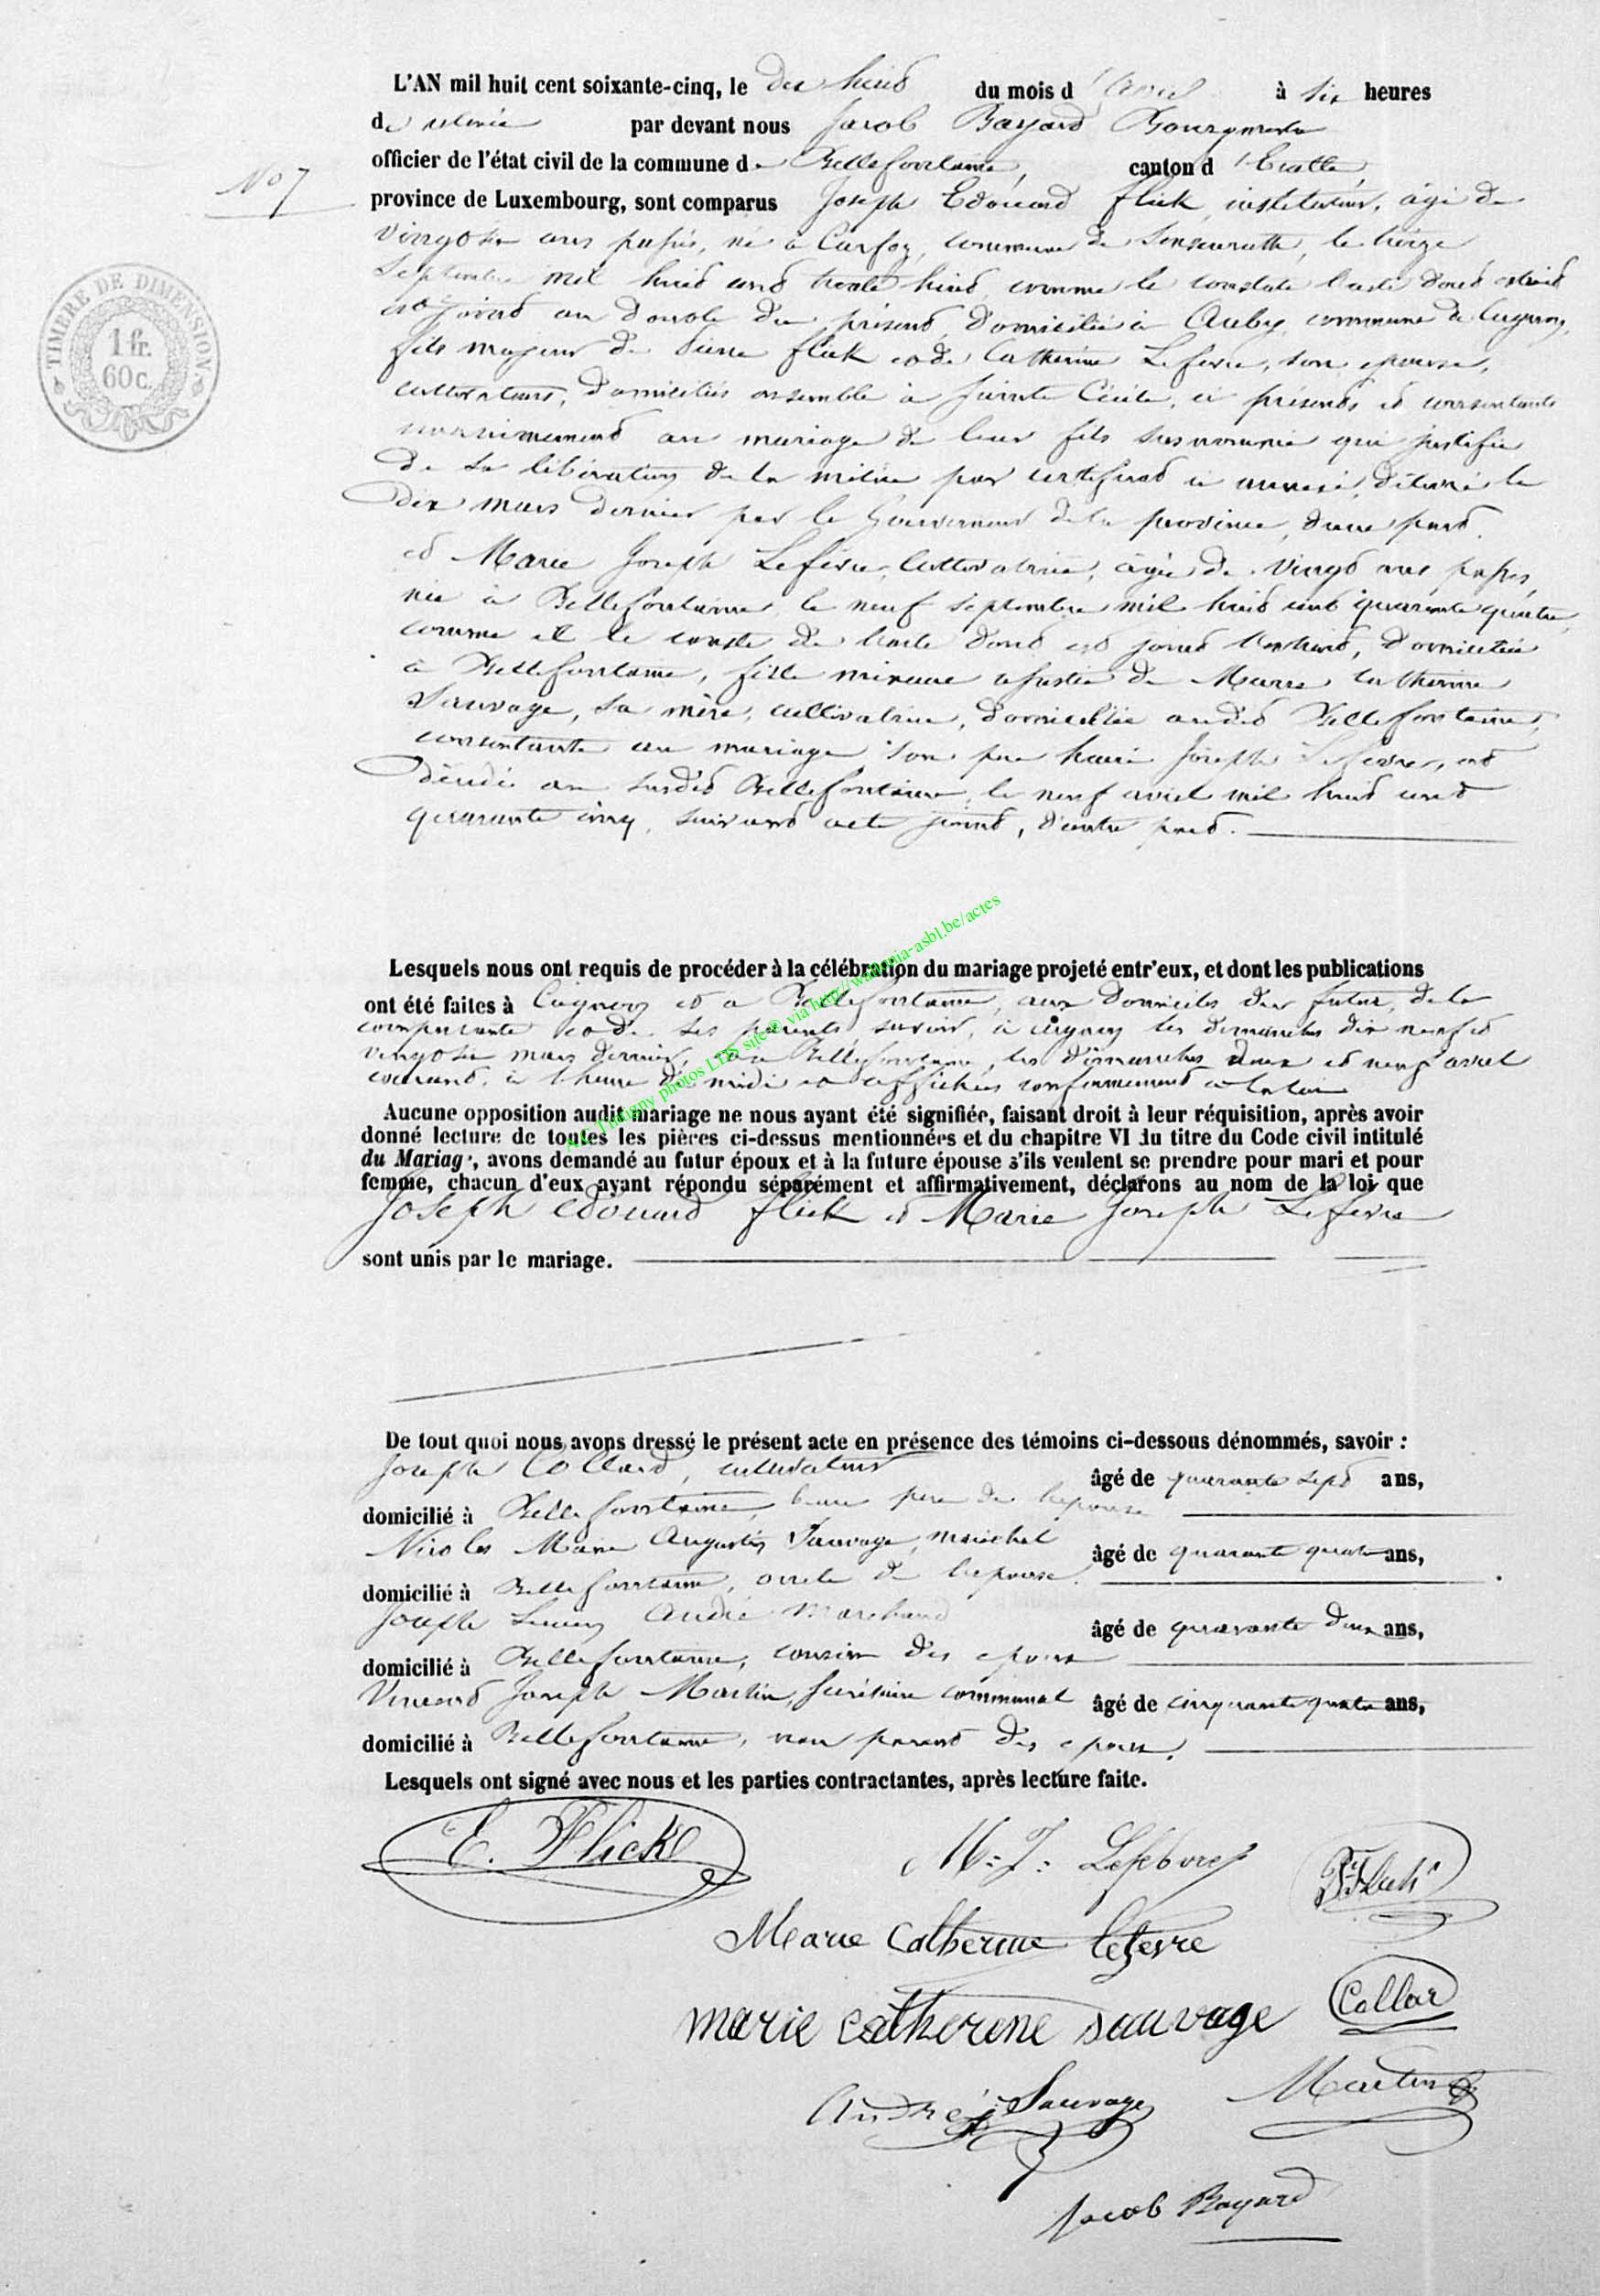 L'AN mil huit cent soixante-cinq, le dix huit du mois d'avril à six heures
de relevée par devant nous Jacob Bayard Bourgmestre
officier de l'état civil de la commune de Bellefontaine, canton d'Etalle,
N° 7
province de Luxembourg, sont comparus Joseph Edouard Flick, instituteur, âgé de
vingt six ans passés, né à commune de Sensenruth, le treize
Septembre mil huit cent trente huit, comme le constate l'acte dont extrait
est joint au double du présent, domicilié à Auby, commune de Cugnon,
fils majeur de Pierre Flick et de Catherine Lefevre, son épouse,
cultivateurs, domiciliés ensemble à Sainte Cécile, ci présents et consentants
au mariage de leur fils susnommé qui justifie
de sa libération de la milice par certificat ci annexé, délivré le
dix mars dernier par le Gouverneur de la province, d'une part.
et Marie Joseph Lefèvre, cultivatrice, âgée de vingt ans passés,
née à Bellefontaine, le neuf septembre mil huit cent quarante quatre,
comme il le conste de l'acte dont est joint l'extrait, domiciliée
à Bellefontaine, fille mineure assistée de Marie Catherine
Sauvage, sa mère, cultivatrice, domiciliée audit Bellefontaine,
consentante au mariage son père Joseph Lefevre, est
décédé au susdit Bellefontaine, le neuf avril mil huit cent
quarante cinq, suivant acte joint, d'autre part.
Lesquels nous ont requis de procéder à la célébration du mariage projeté entr'eux, et dont les publications
ont été faites à Cugnon et à Bellefontaine, aux domiciles du futur, de la
comparante et de ses parents, savoir, à Cugnon les dimanches dix neuf et
vingt six mars dernier, et à Bellefontaine, les dimanches deux et neuf avril
courant, à l'heure de midi et affichées conformément à la loi
Aucune opposition audit mariage ne nous ayant été signifiée, faisant droit à leur réquisition, après avoir
donné lecture de toutes les pièces ci-dessus mentionnées et du chapitre VI du titre du Code civil intitulé
du Mariage, avons demandé au futur époux et à la future épouse s'ils veulent se prendre pour mari et pour
femme, chacun d'eux ayant répondu séparément et affirmativement, déclarons au nom de la loi que
Joseph Edouard Flick et Marie Joseph Lefevre
sont unis par le mariage.
De tout quoi nous avons dressé le présent acte en présence des témoins ci-dessous dénommés, savoir :
Joseph Collard, cultivateur âgé de quarante sept ans,
domicilié à Bellefontaine, beau père de l'épouse
Nicolas Marie Augustin Sauvage, maréchal âgé de quarante quatre ans,
domicilié à Bellefontaine, oncle de l'épouse.
Joseph Lucien André marchand âgé de quarante deux ans,
domicilié à Bellefontaine, cousin des époux
Vincent Joseph Martin, secrétaire communal âgé de cinquante quatre ans,
domicilié à Bellefontaine, non parent des époux.
Lesquels ont signé avec nous et les parties contractantes, après lecture faite.
E. Flick
M: J: Lefebvre
Flick
Marie Catherine lefevre
marie catherine sauvage
Collar
André
Sauvage
Martin
Jacob Bayard
TIMBRE DE DIMENSION
1 fr.
60 c.
A.C. Tintigny photos LDS site® via http://wallonia-asbl.be/actes